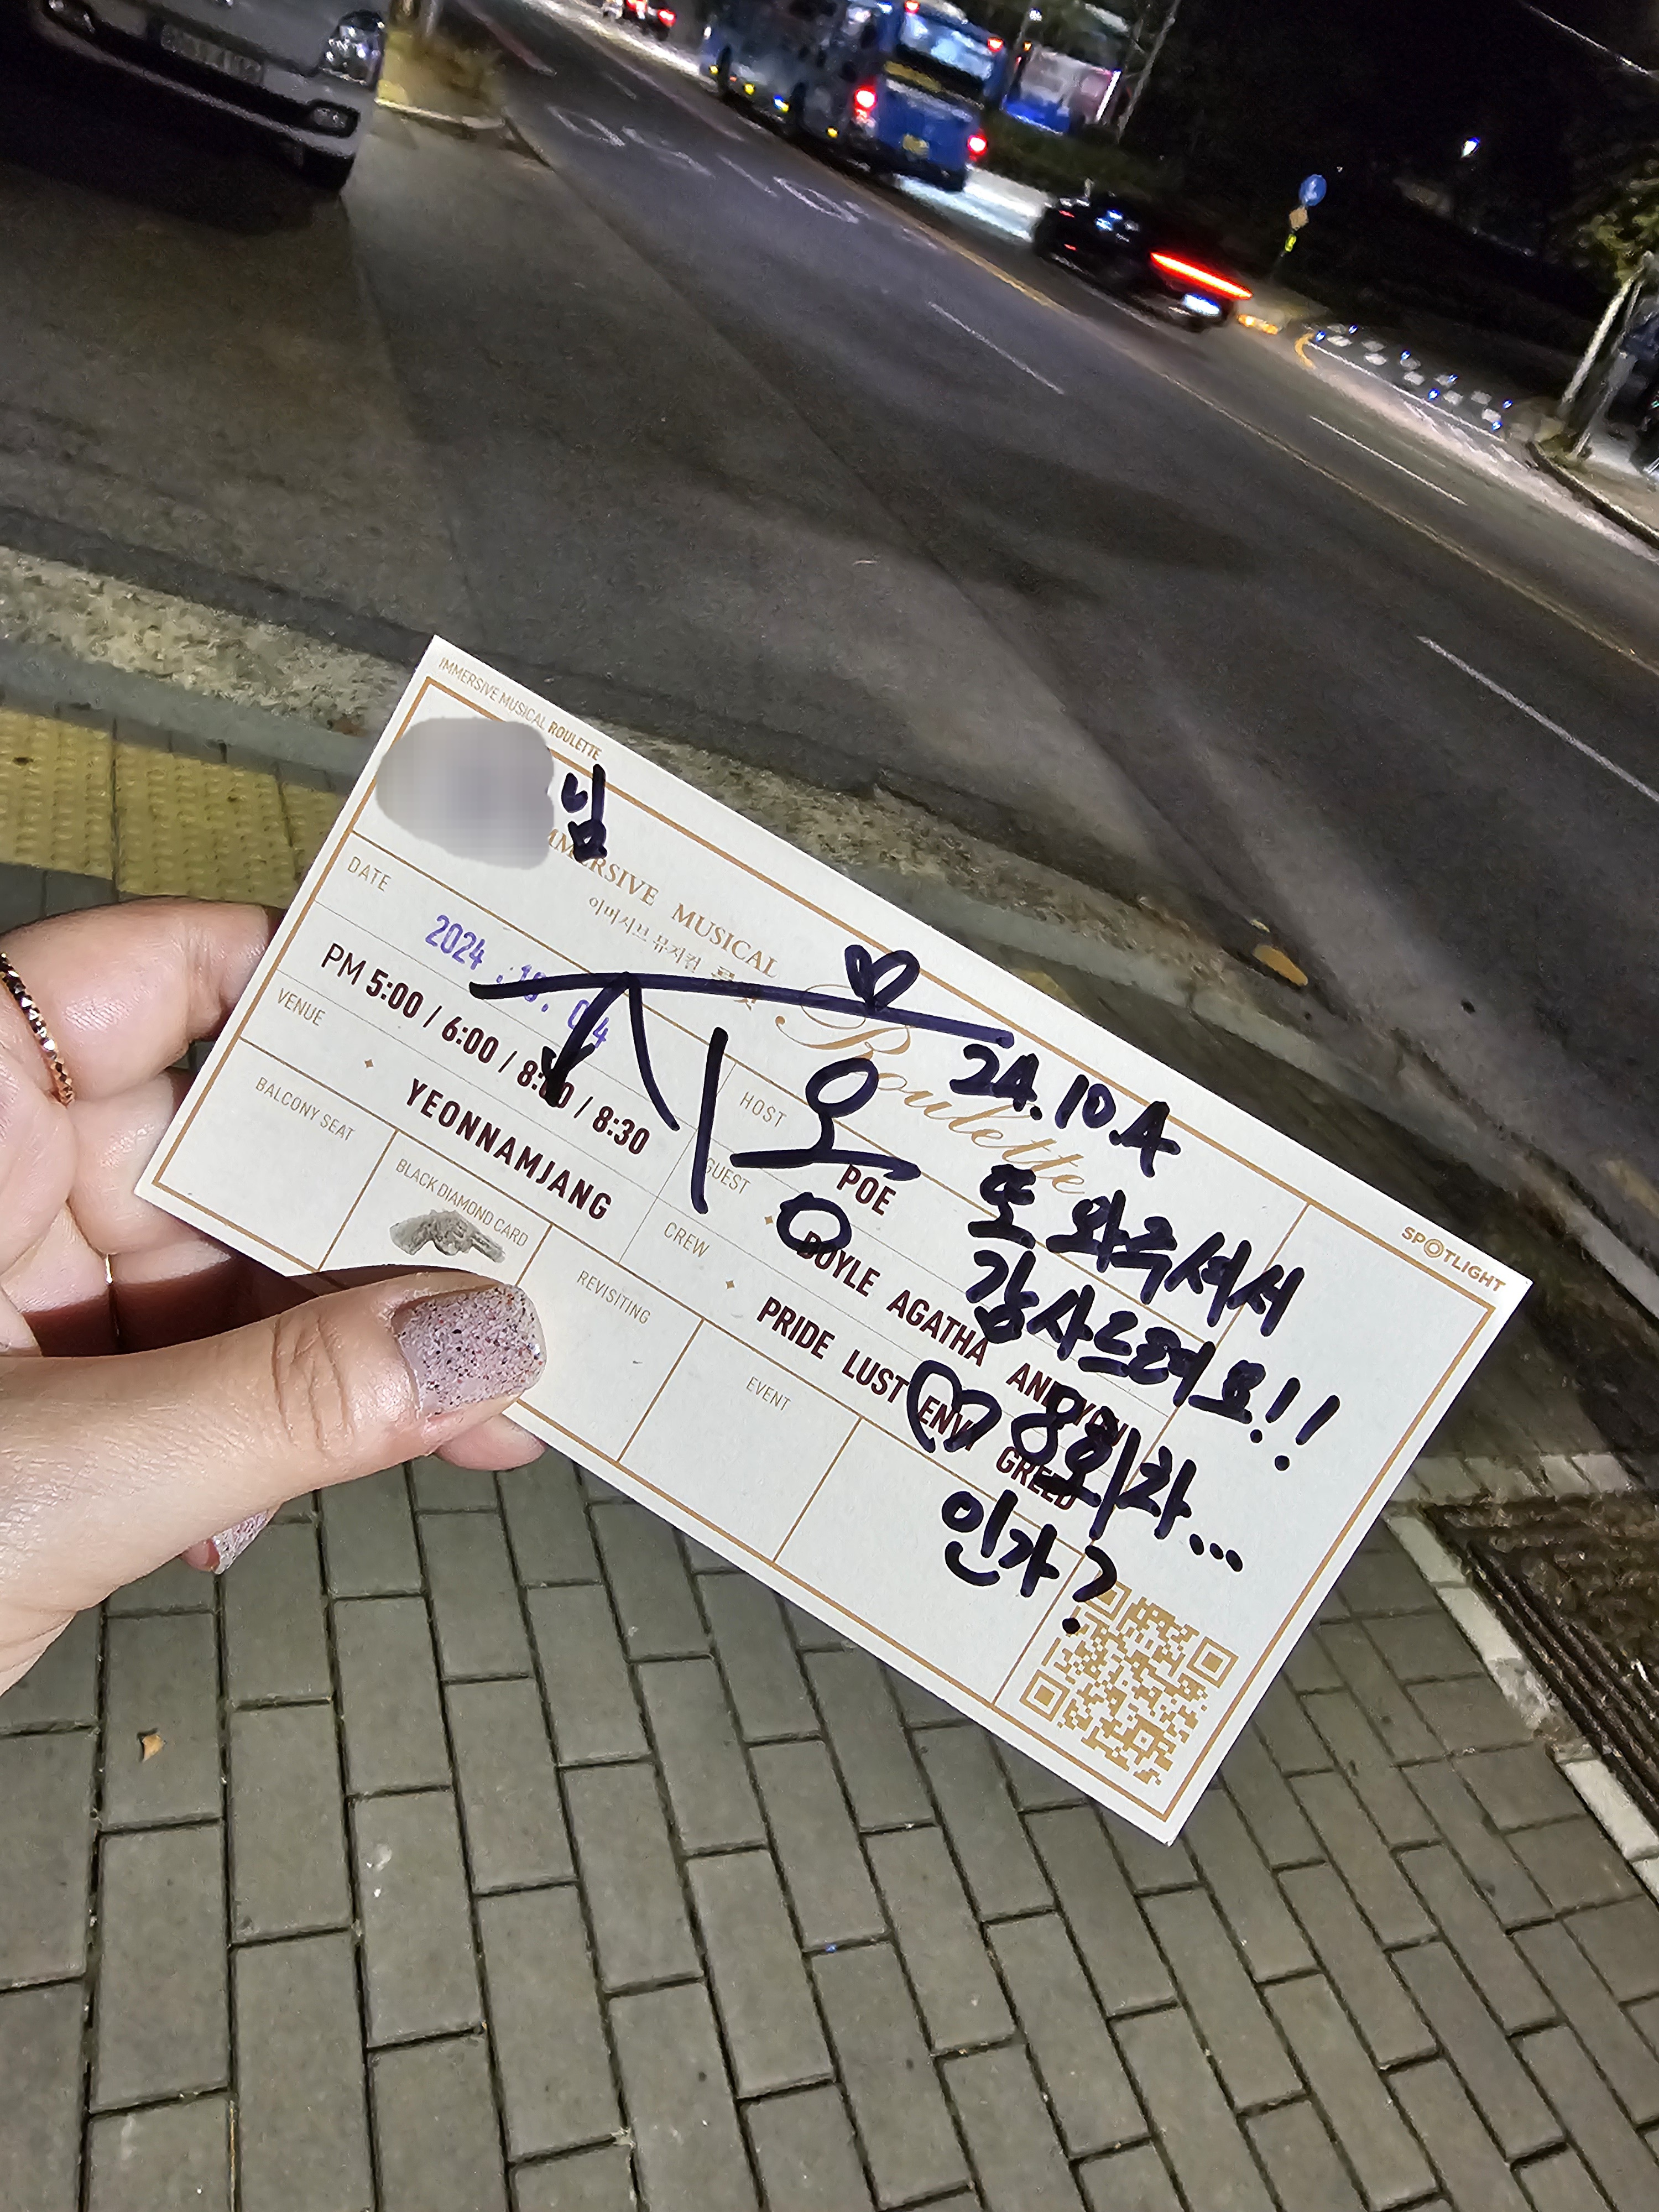 IMMERSIVE MUSICAL ROULETTE
님
IMMERSIVE MUSICAL
이머시브 뮤지컬 룰렛
Roulette
DATE
2024. 10. 04
PM 5:00 / 6:00 / 8:00 / 8:30
VENUE
YEONNAMJANG
HOST
POE
GUEST
DOYLE AGATHA ANDYRN
CREW
PRIDE LUST ENVY GREED
BALCONY SEAT
BLACK DIAMOND CARD
REVISITING
EVENT
SPOTLIGHT
지용
24.10.4
또 와주셔서
감사드려요!!
88회차...
인가?